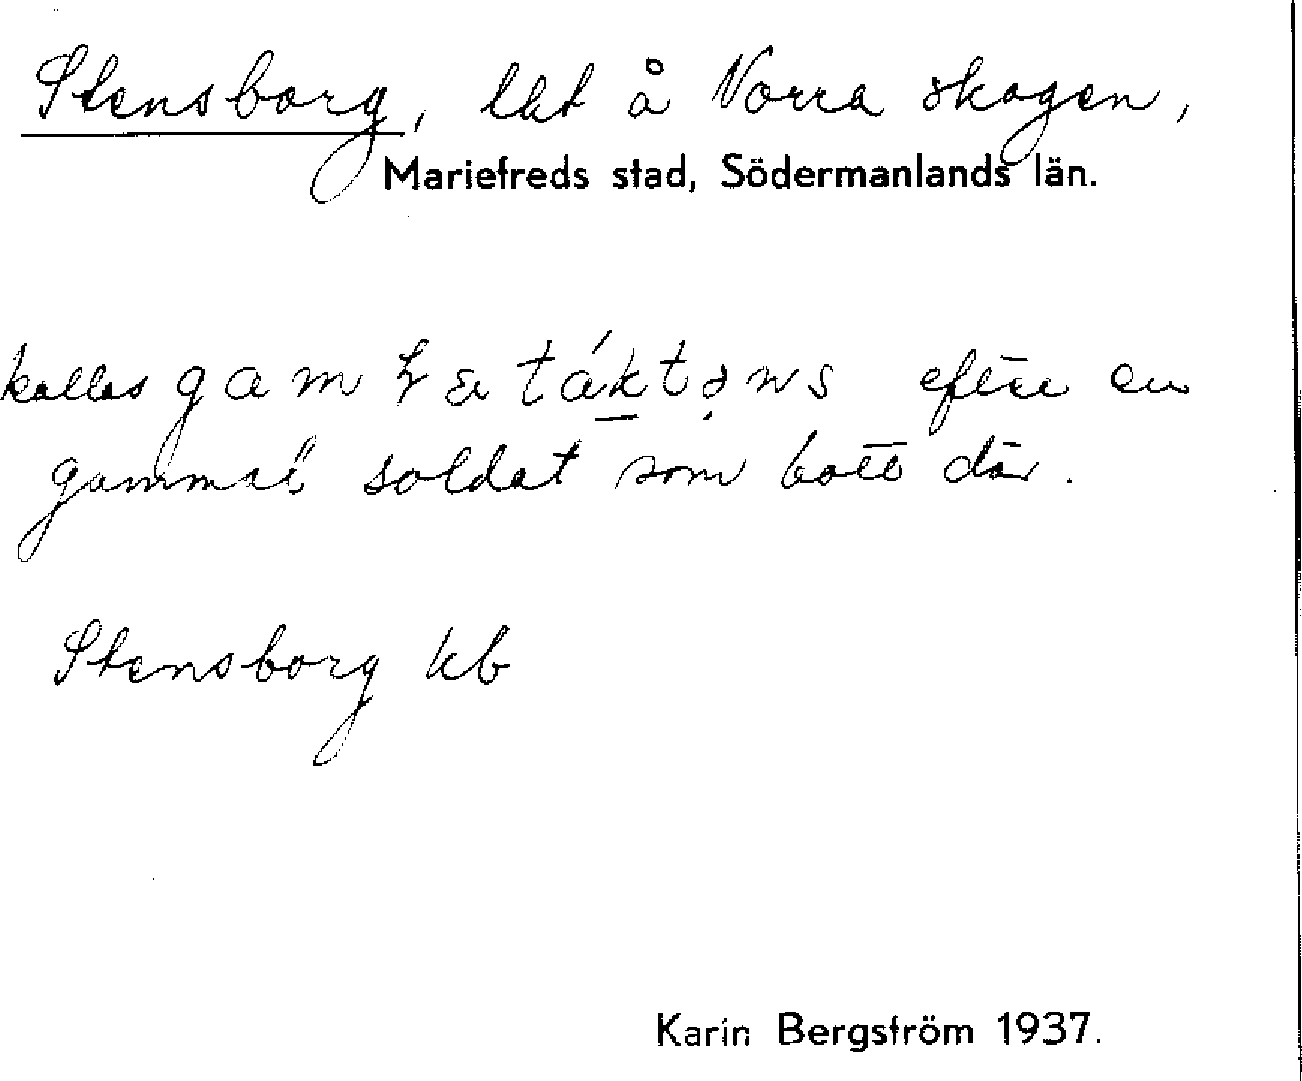 Stensborg, lht å Norra skogen,
Mariefreds stad, Södermanlands län.
kallas efter en
gammal soldat som bott där.
Stensborg kb
Karin Bergström 1937.